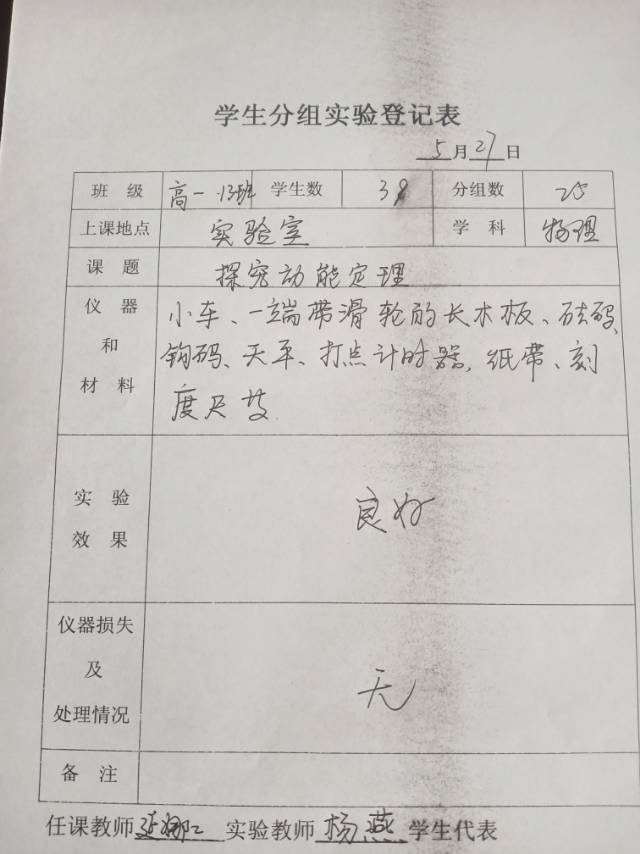 学生分组实验登记表
5月27日
班 级 高一.13班 学生数 38 分组数 25
上课地点 实验室 学 科 物理
课 题 探究动能定理
仪 器 和 材 料 小车、一端带滑轮的长木板、砝码、
钩码、天平、打点计时器,纸带、刻
度尺等
实 验 效 果 良好
仪器损失 及 处理情况 无
备 注
任课教师 实验教师 杨燕 学生代表